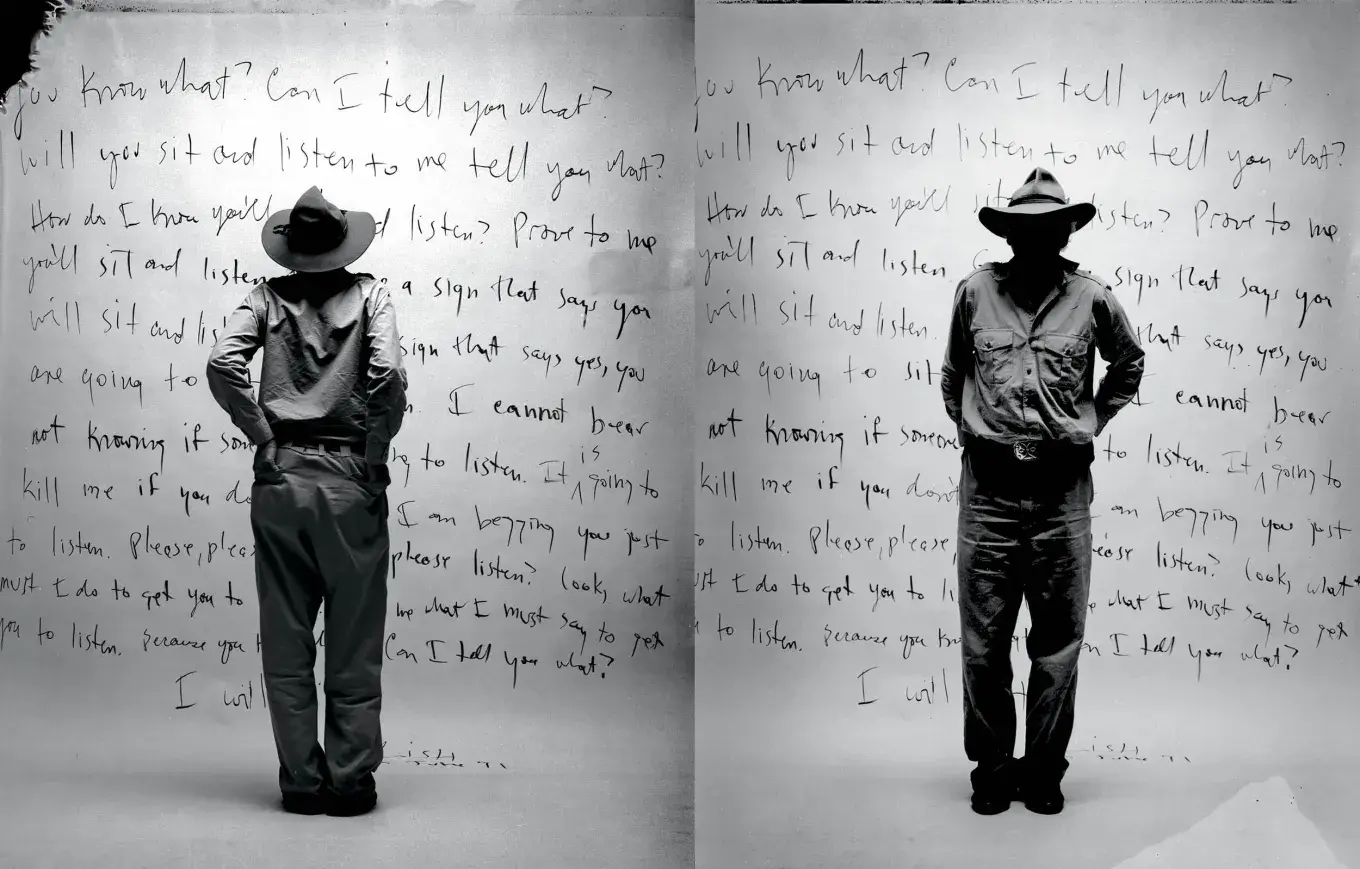 you know what? Can I tell you what?
will you sit and listen to me tell you what?
How do I know you'll d listen? Prove to me
you'll sit and listen a sign that says you
will sit and lis sign that says yes, you
are going to . I cannot bear
not knowing if som ng to listen. It is going to
kill me if you do I am begging you just
to listen. Please, pleas please listen? Look, what
must I do to get you to me what I must say to get
you to listen. Because you k Can I tell you what?
I will
ish
you know what? Can I tell you what?
will you sit and listen to me tell you what?
How do I know you'll sit listen? Prove to me
you'll sit and listen. sign that says you
will sit and listen. that says yes, you
are going to sit I cannot bear
not knowing if someone to listen. It is going to
kill me if you don't am begging you just
to listen. Please, please, please listen? Look, what
must I do to get you to li e what I must say to get
you to listen. Because you kn n I tell you what?
I will t
ish